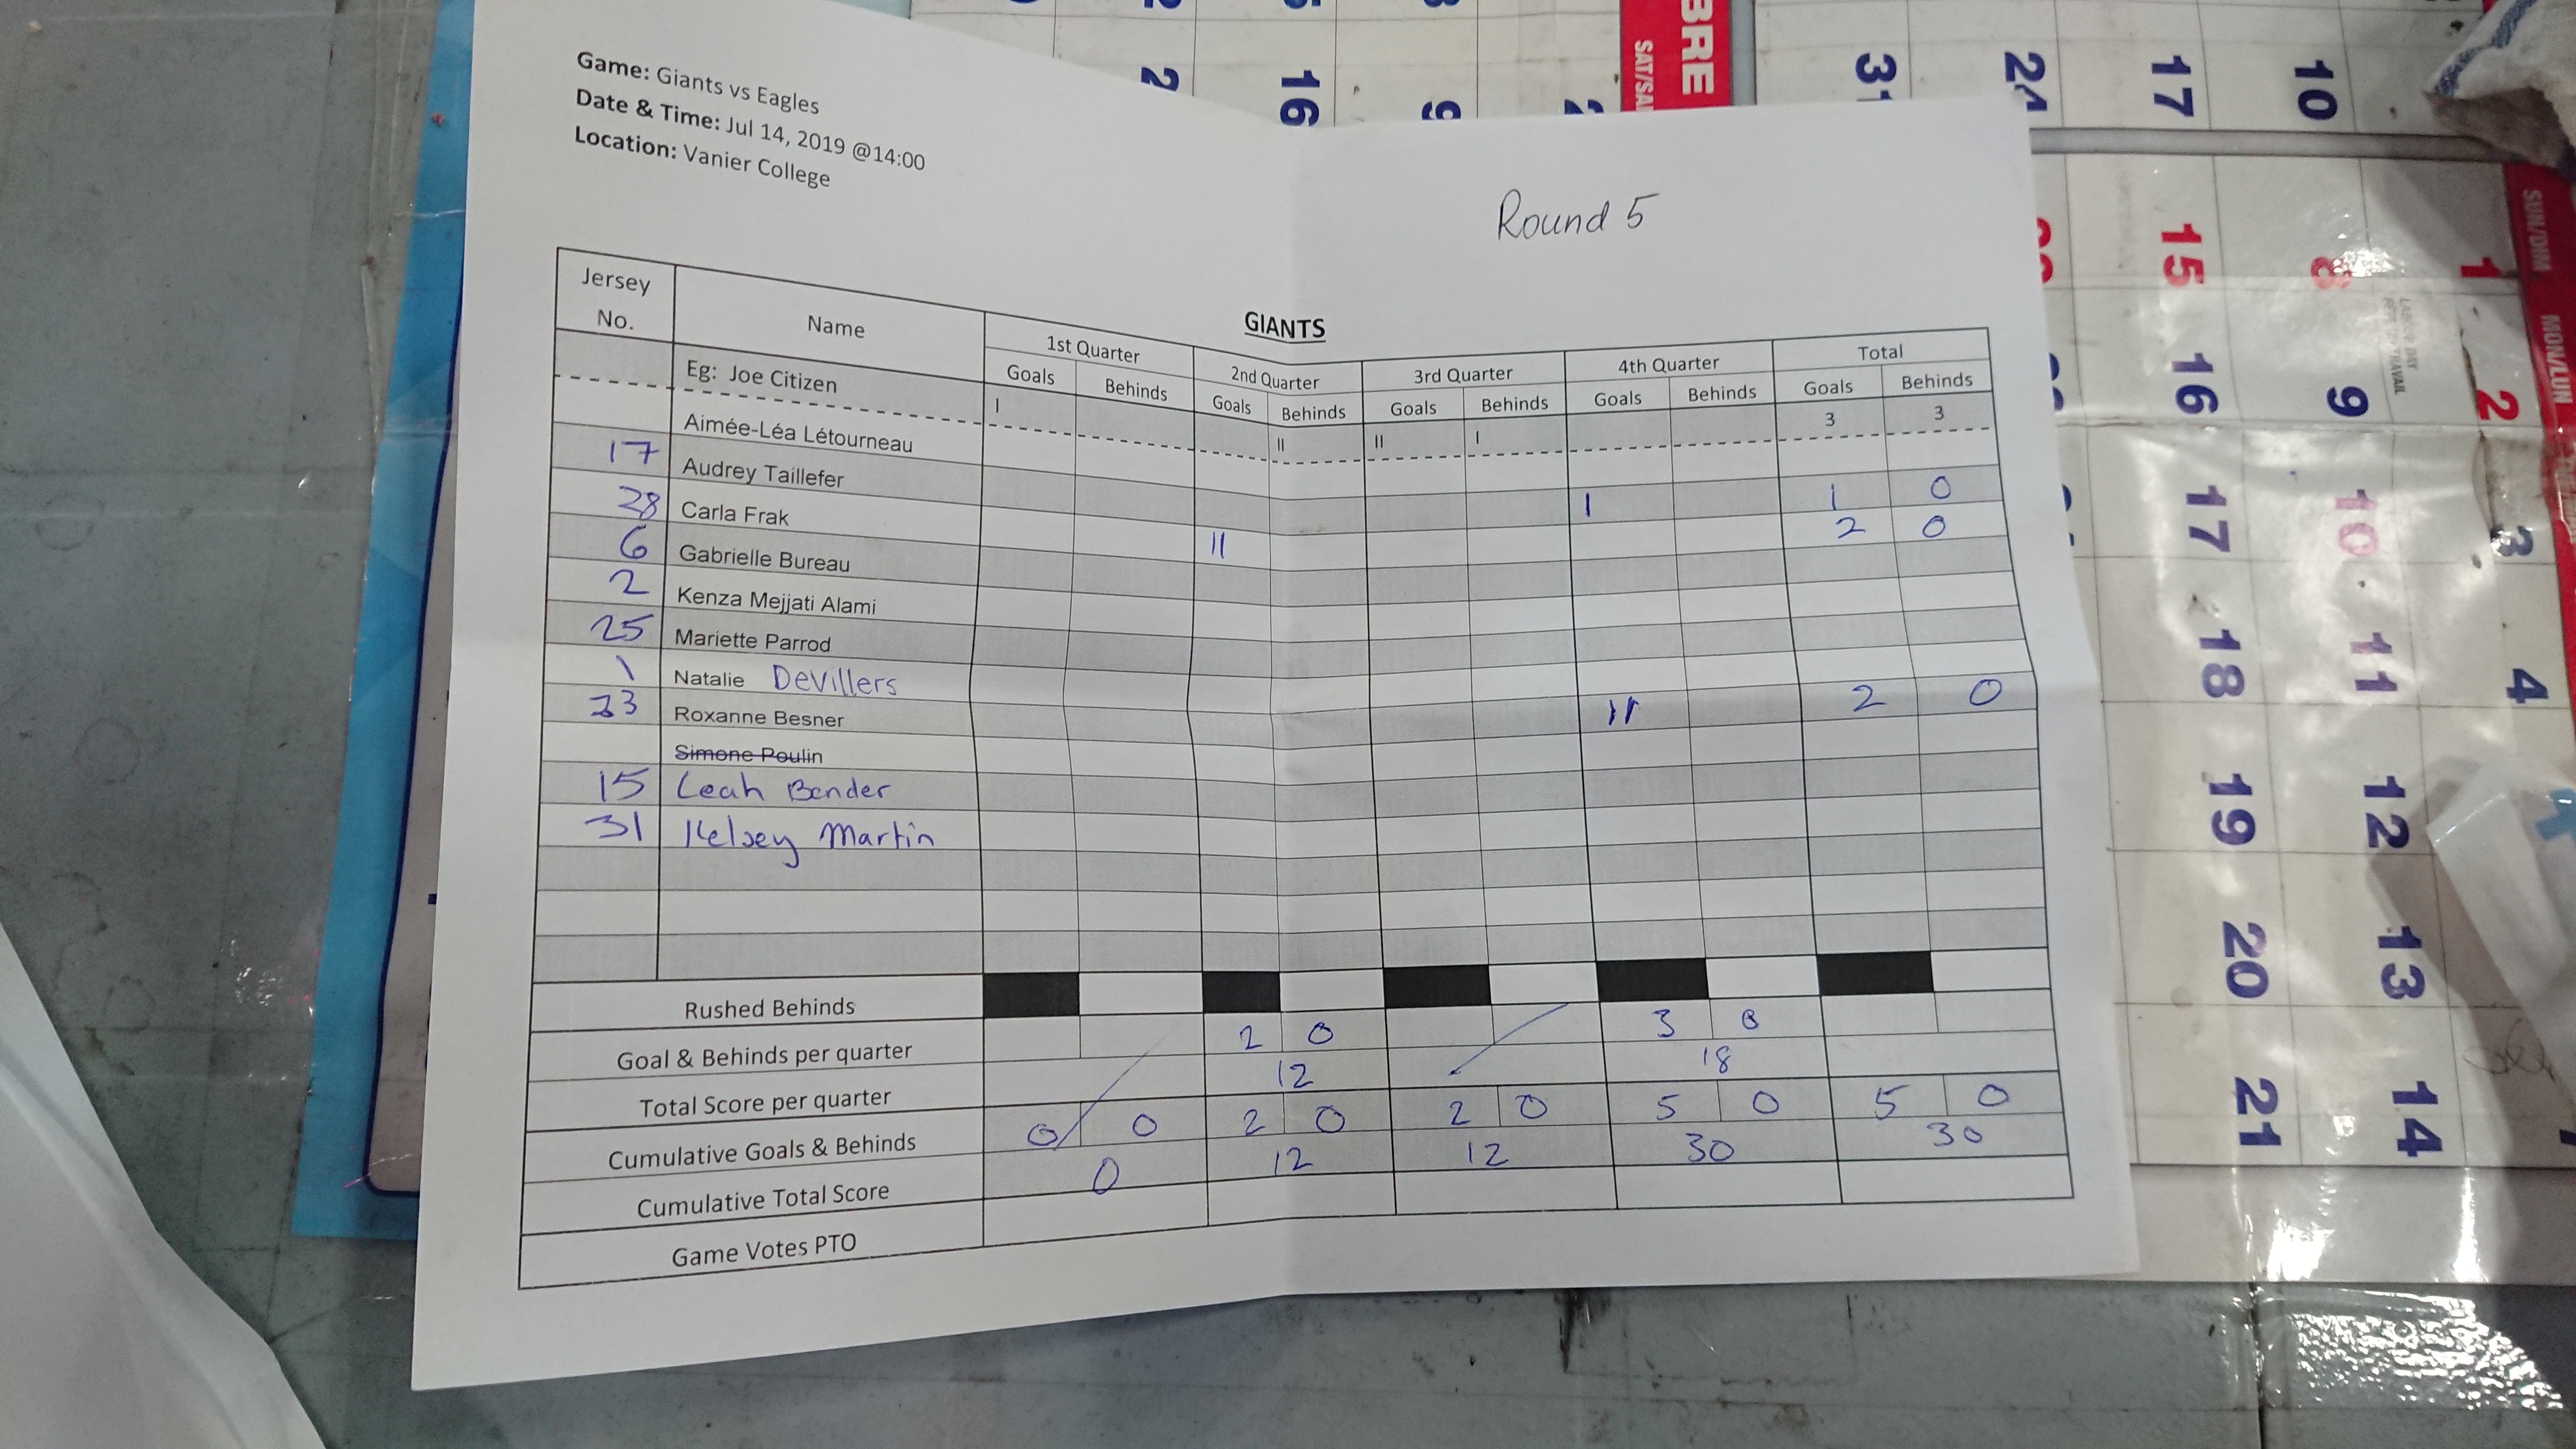 Game: Giants vs Eagles
Date & Time: Jul 14, 2019 @14:00
Location: Vanier College
Round 5
GIANTS
Jersey No. Name 1st Quarter 2nd Quarter 3rd Quarter 4th Quarter Total
Goals Behinds Goals Behinds Goals Behinds Goals Behinds Goals Behinds
Eg: Joe Citizen I II II I 3 3
Aimée-Léa Létourneau
17 Audrey Taillefer I 1 0
28 Carla Frak II 2 0
6 Gabrielle Bureau
2 Kenza Mejjati Alami
25 Mariette Parrod
1 Natalie Devillers
33 Roxanne Besner II 2 0
Simone Poulin
15 Leah Bender
31 Kelsey Martin
Rushed Behinds
Goal & Behinds per quarter 2 0 3 0
Total Score per quarter 12 18
Cumulative Goals & Behinds 0 0 2 0 2 0 5 0 5 0
Cumulative Total Score 0 12 12 30 30
Game Votes PTO
BRE
SAT/SA
2 16 9
31 24 17 10
SUN/DIM
MON/LUN
15 8 1
16 9 2
17 10 3
18 11 4
19 12
20 13
21 14